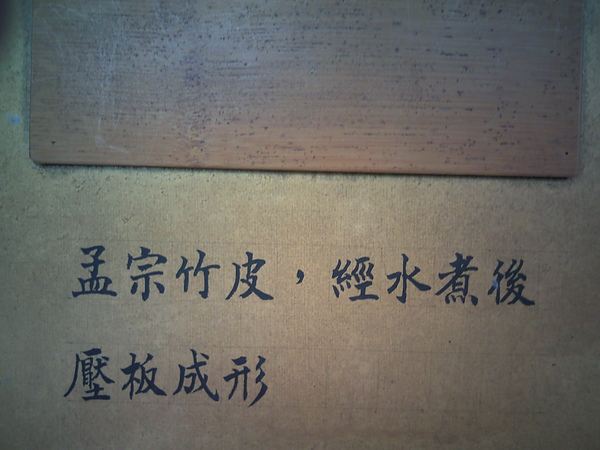 孟宗竹皮，經水煮後
壓板成形